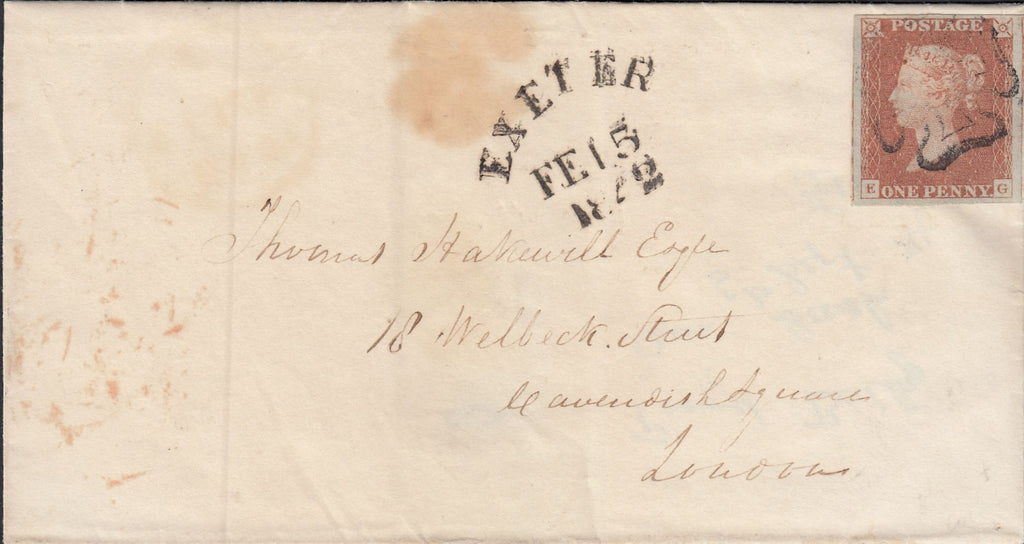 POSTAGE
E ONE PENNY G
EXETER
FE 15
1842
Thomas Hakewill Esqre
18 Welbeck Street
Cavendish Square
London